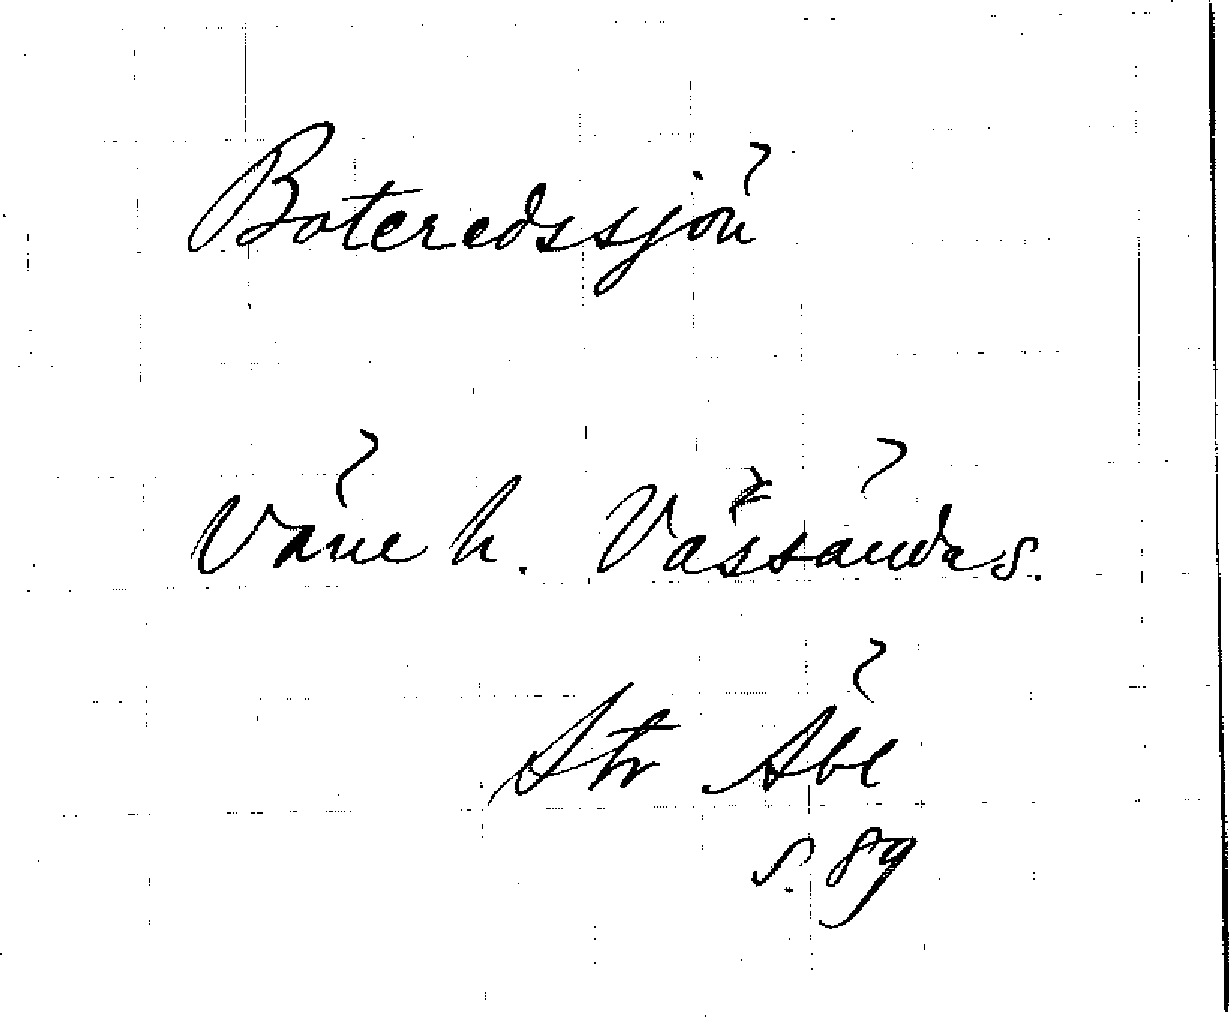 Boteredssjön
Väne h. Vassända s.
Str Åbe
s. 89